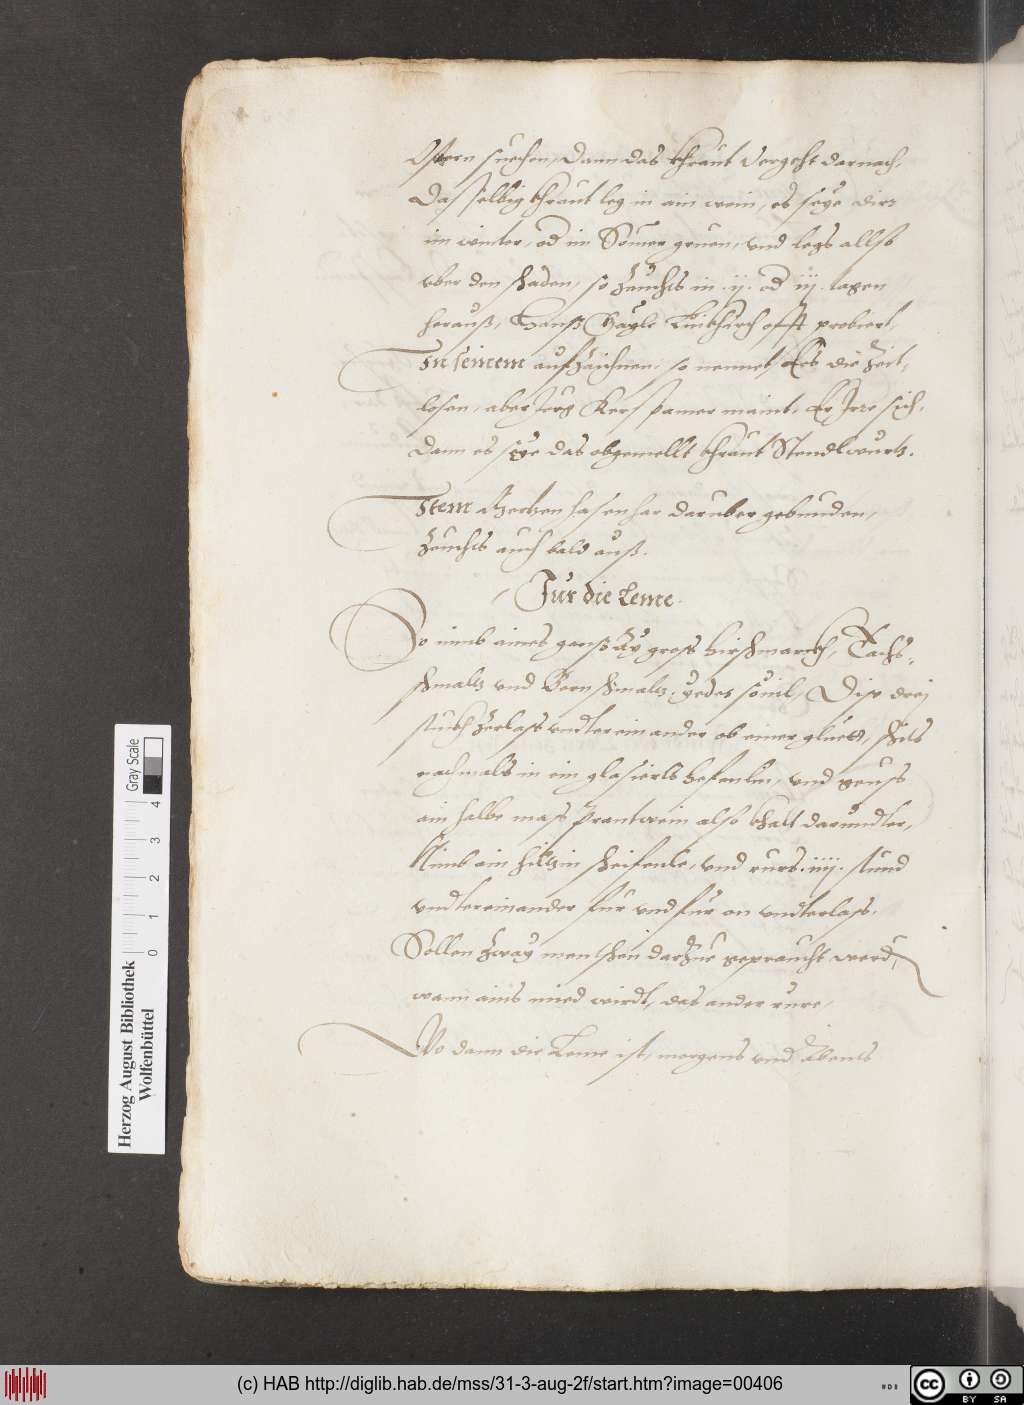 Ostern suechen, dann das khraut vergeht darnach.
Das selbig khraut leg in ain wein, es seye dirr
im winter, od im Somer gruen, und legs allso
vber den schaden, so zeuchts in .ij. od iij. tagen
herauß, Hanß offt probiert,
In seinem aufzaichnen, so nennet Ers die Zeit,,
losen, aber Jerg maint, Er Irre sich,
dann es seye das obgemellt khraut Stendlwurtz.
Item hasen har daruber gebunden,
zeuchts auch bald auß.
Fur die Leme
So nimb aines ganß Ay gross hirschmarckh, Tachs,,
schmaltz und Bernschmaltz, yedes souil, Dise drej
stuckh zerlass vndtereinander ob einer gluett, schits
nachmals in ein glasierts hefenlin, vnd geuss
ain halbe mass Prantwein also khalt darundter,
Nimb ain hiltzin , vnd rurs .iiij. stund
vndtereinander fur vnd fur on vndterlass.
Sollen zway menschen darzue gepraucht werd,
wann ains mied wirdt, das ander rure,
Wo dann die Leme ist, morgens vnd Abents
Herzog August Bibliothek
Wolfenbüttel
0 1 2 3 4
Gray Scale
(c) HAB http://diglib.hab.de/mss/31-3-aug-2f/start.htm?image=00406
cc BY SA